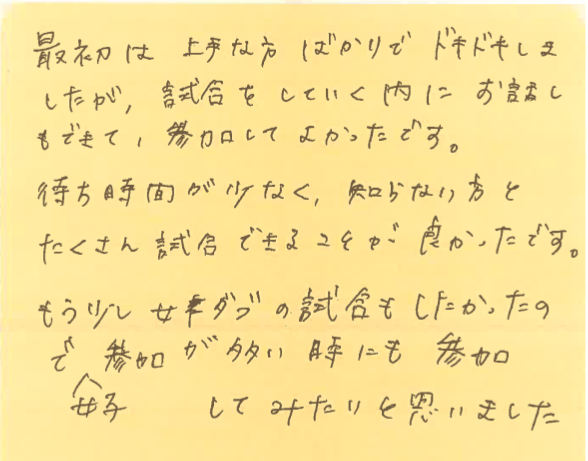 最初は上手な方ばかりでドキドキしま
したが、試合をしていく内にお話し
もできて、参加してよかったです。
待ち時間が少なく、知らない方と
たくさん試合できることが良かったです。
もう少し女子ダブの試合もしたかったの
で参加が多い時にも参加
女子
してみたいと思いました